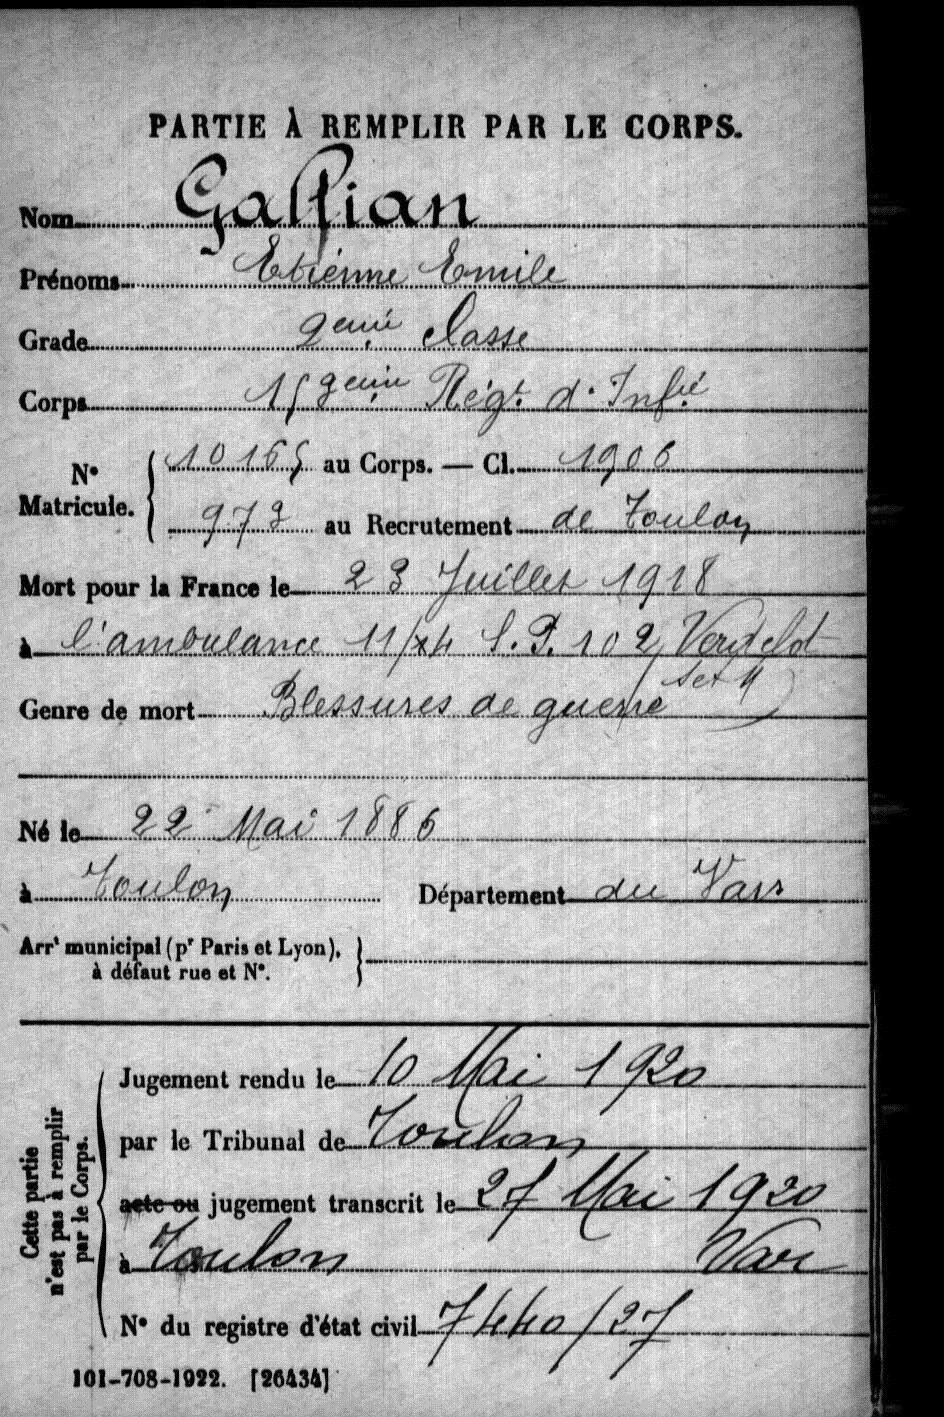 PARTIE À REMPLIR PAR LE CORPS.
Nom Gallian
Prénoms Etienne Emile
Grade 2eme classe
Corps 152eme Régt. d'Infie
N° Matricule. 10165 au Corps. — Cl. 1906
972 au Recrutement de Toulon
Mort pour la France le 23 Juillet 1918
à l'ambulance 11/24 S.P. 102
Genre de mort Blessures de guerre
Né le 22 Mai 1886
à Toulon Département du Var
Arrt municipal (pr Paris et Lyon),
à défaut rue et N°.
Cette partie
n'est pas à remplir
par le Corps.
Jugement rendu le 10 Mai 1920
par le Tribunal de Toulon
acte ou jugement transcrit le 27 Mai 1920
à Toulon Var
N° du registre d'état civil 7440/27
101-708-1922. [26434]